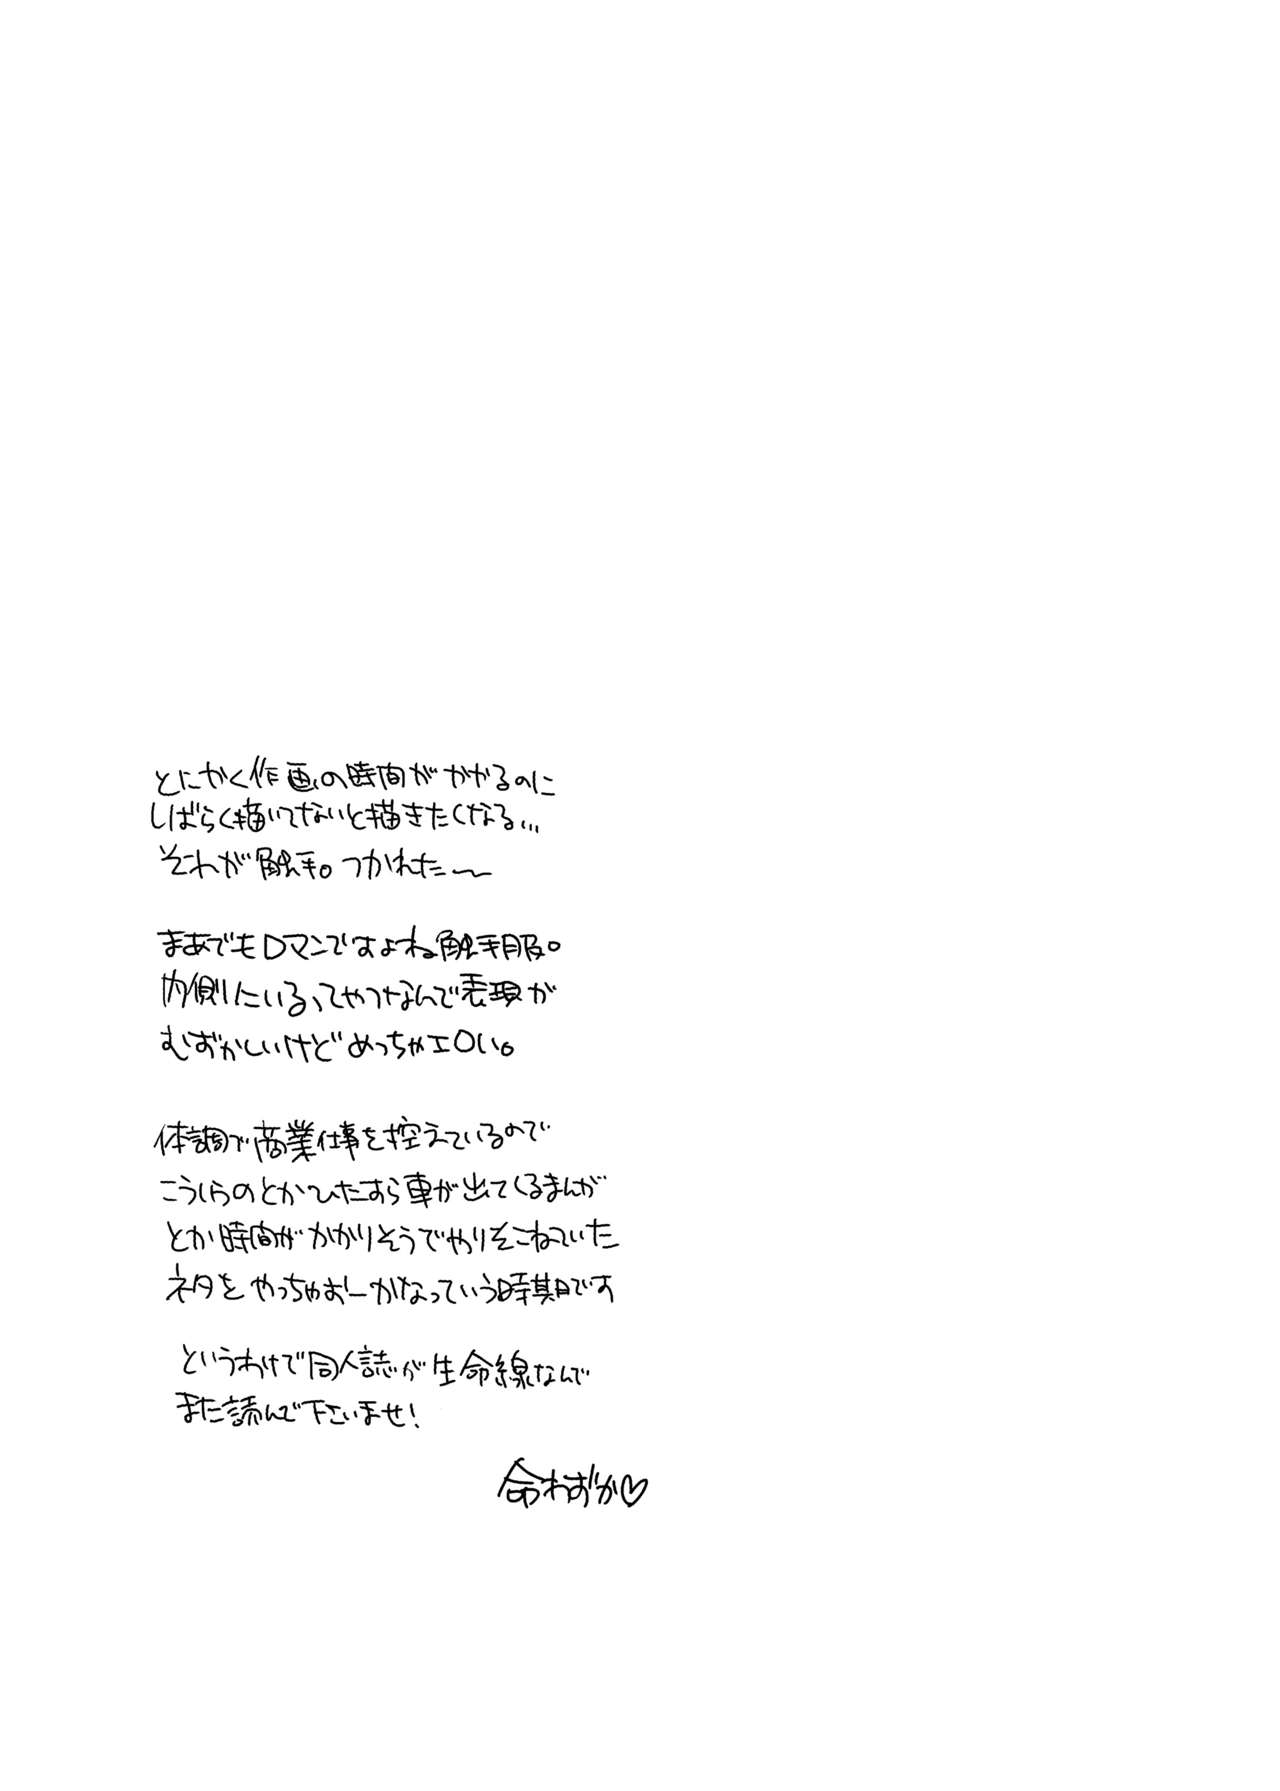 とにかく作画の時間がかかるのに
しばらく描いてないと描きたくなる…
それが触手。つかれた〜
まあでもロマンですよね触手服。
内側にいるってやつなんで表現が
むずかしいけどめっちゃエロい。
体調で商業仕事を控えているので
こうらのとかひたすら車が出てくるまんが
とか時間がかかりそうでやりそこねていた
ネタをやっちゃおーかなっていう時期です
というわけで同人誌が生命線なんで
また読んで下さいませ!
命わずか♡